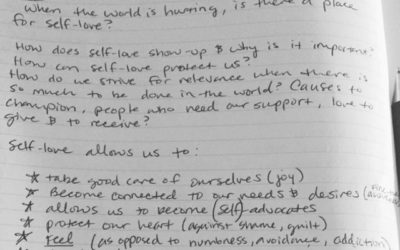 when the world is hurting, is there a place
for self-love?
How does self-love show-up & why is it important?
How can self-love protect us?
How do we strive for relevance when there is
so much to be done in the world? Causes to
champion, people who need our support, love to
give & to receive?
Self-love allows us to:
* take good care of ourselves (joy)
* Become connected to our needs & desires
* allows us to become (self)-advocates
* protect our heart (against shame, guilt)
* Feel (as opposed to numbness, avoidance, addiction)